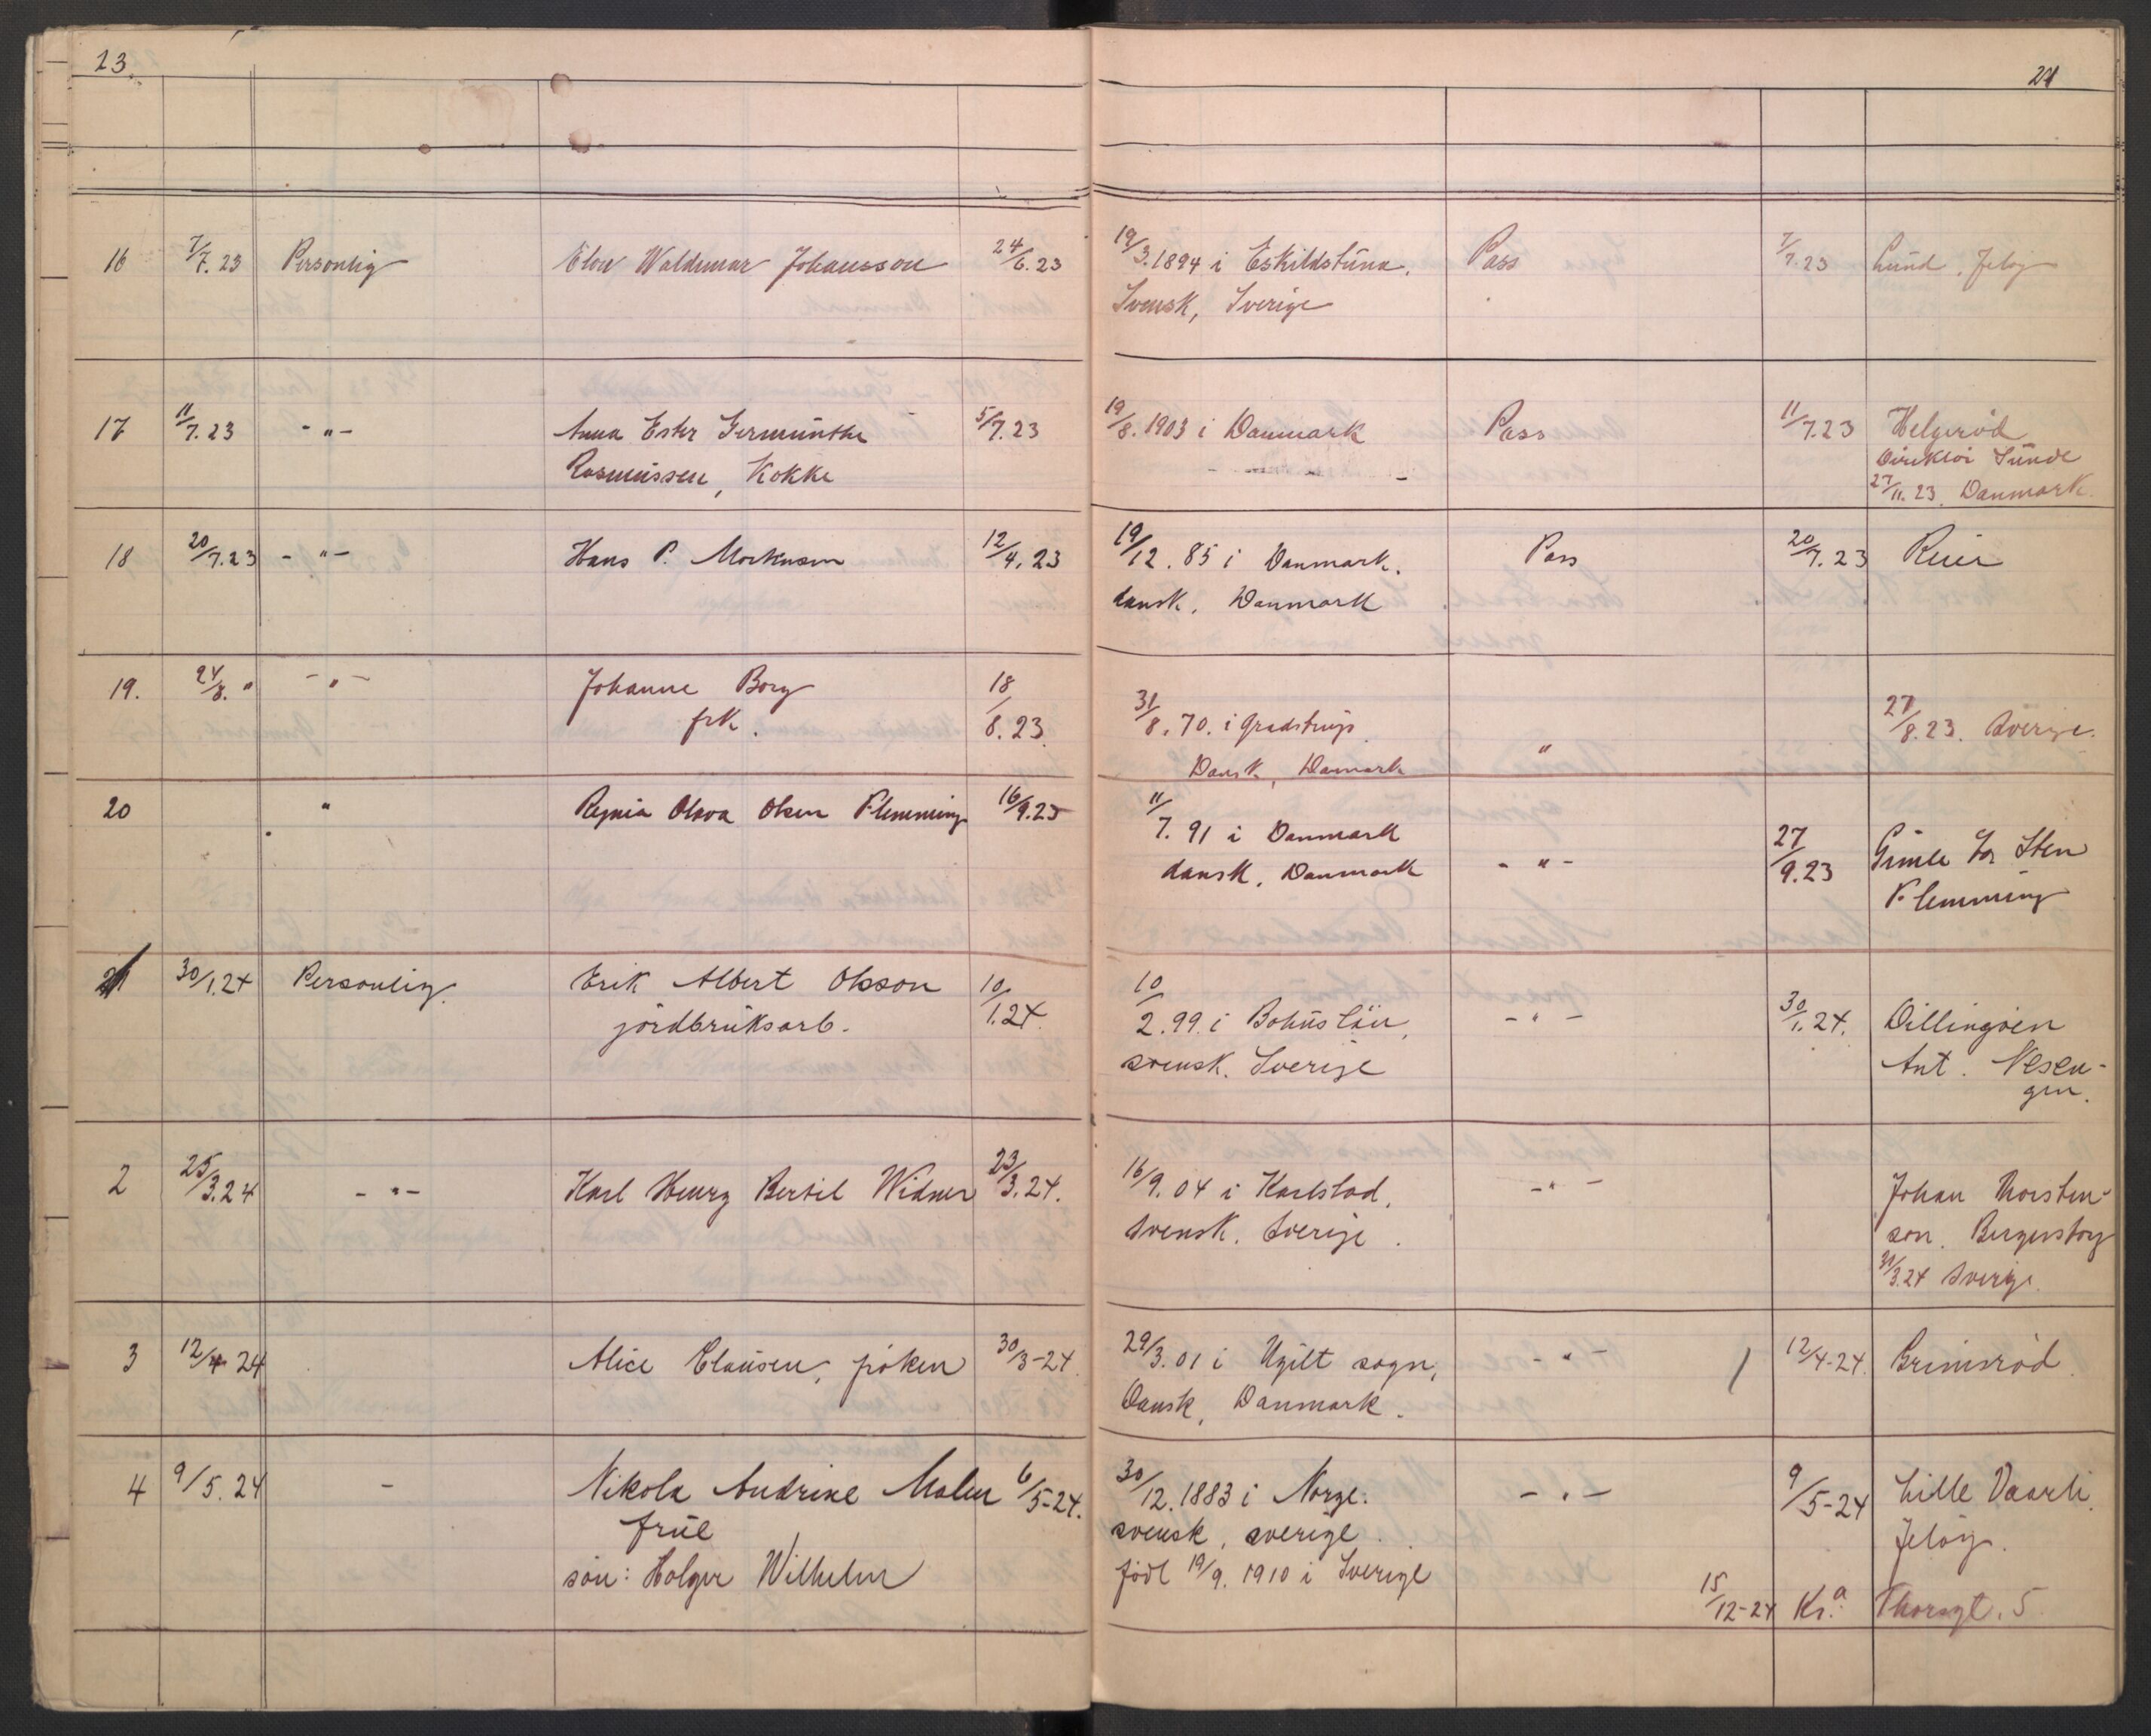 23.
24
16 7/7.23 Personlig Elov Waldemar Johansson 24/6.23 19/3.1894 i Eskildstuna. Pass 7/7.23 Lund, Jeløy
Svensk, Sverige
17 11/7.23 -"- Anna Ester Germunthe 5/7.23 19/8.1903 i Danmark Pass 11/7.23 Helgerød
Rasmussen, Kokke Direktør Sunde
27/11.23 Danmark.
18 20/7.23 -"- Hans P. Mortensen 12/4.23 19/12.85 i Danmark. Pass 20/7.23 Reier
dansk. Danmark
19. 24/8. " -"- Johanne Borg 18/8.23 31/8.70. i Gradstrup " 27/8.23. Sverige.
frk. Dansk, Danmark
20 " Regnia Olava Olsen Flemming 16/9.23 11/7.91 i Danmark 27/9.23 Gimle for Sten
dansk. Danmark -"- Flemming
1 30/1.24 Personlig. Erik Albert Olsson 10/1.24. 10/2.99. i Bohuslän, -"- 30/1.24. Dillingøen
jordbruksarb. svensk. Sverige Ant. Nesen-
gen.
2 25/3.24 -"- Karl Henry Bertil Widner 23/3.24. 16/9.04 i Karlstad, -"- Johan Thorsten-
svensk. Sverige. son. Bergersborg
31/3.24 Sverige.
3 12/4 24 Alice Clausen, frøken 30/3-24. 29/3.01 i Ugilt sogn, -"- 12/4-24. Grimsrød.
Dansk, Danmark.
4 9/5.24 - Nikola Andrine Malm 6/5-24. 30/12.1883 i Norge. -"- 9/5-24 Lille Vaarli.
frue svensk, sverige. Jeløy.
søn: Holger Wilhelm født 19/9.1910 i Sverige
15/12-24 Kr.a Thorsgt. 5